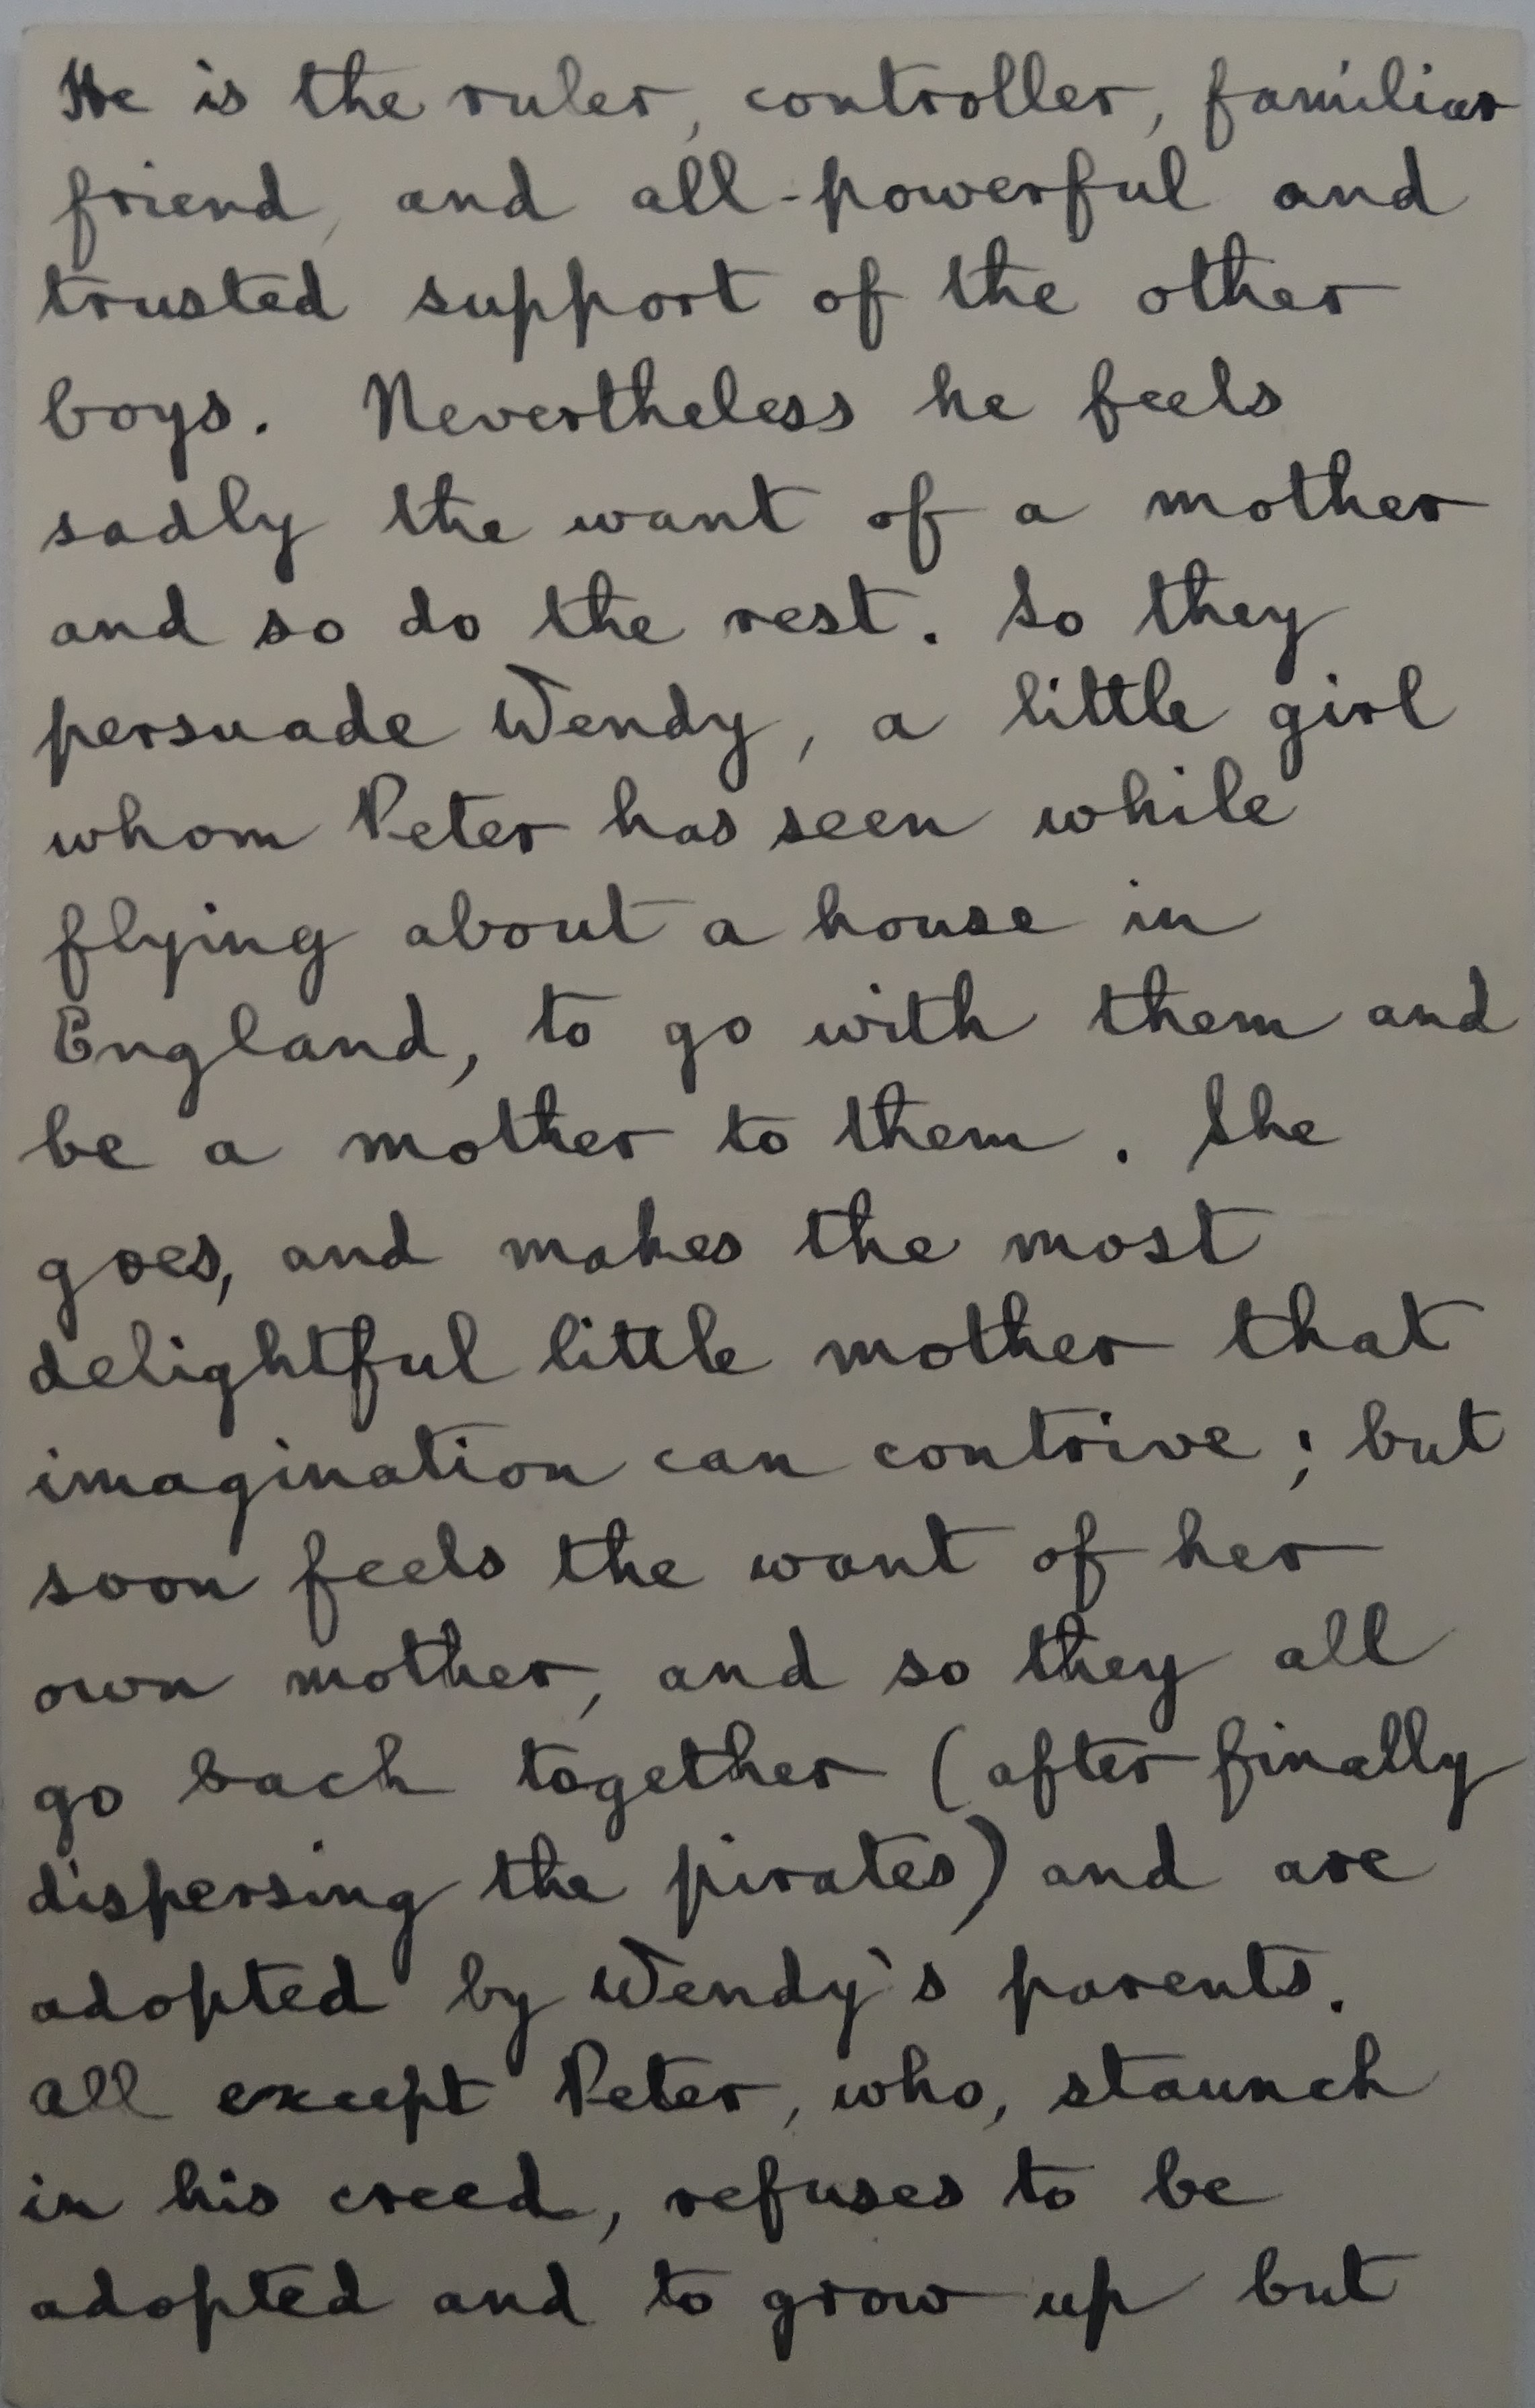 He is the ruler, controller, familiar
friend, and all-powerful and
trusted support of the other
boys. Nevertheless he feels
sadly the want of a mother
and so do the rest. So they
persuade Wendy, a little girl
whom Peter has seen while
flying about a house in
England, to go with them and
be a mother to them. She
goes, and makes the most
delightful little mother that
imagination can contrive; but
soon feels the want of her
own mother, and so they all
go back together (after finally
dispersing the pirates) and are
adopted by Wendy's parents.
All except Peter, who, staunch
in his creed, refuses to be
adopted and to grow up but